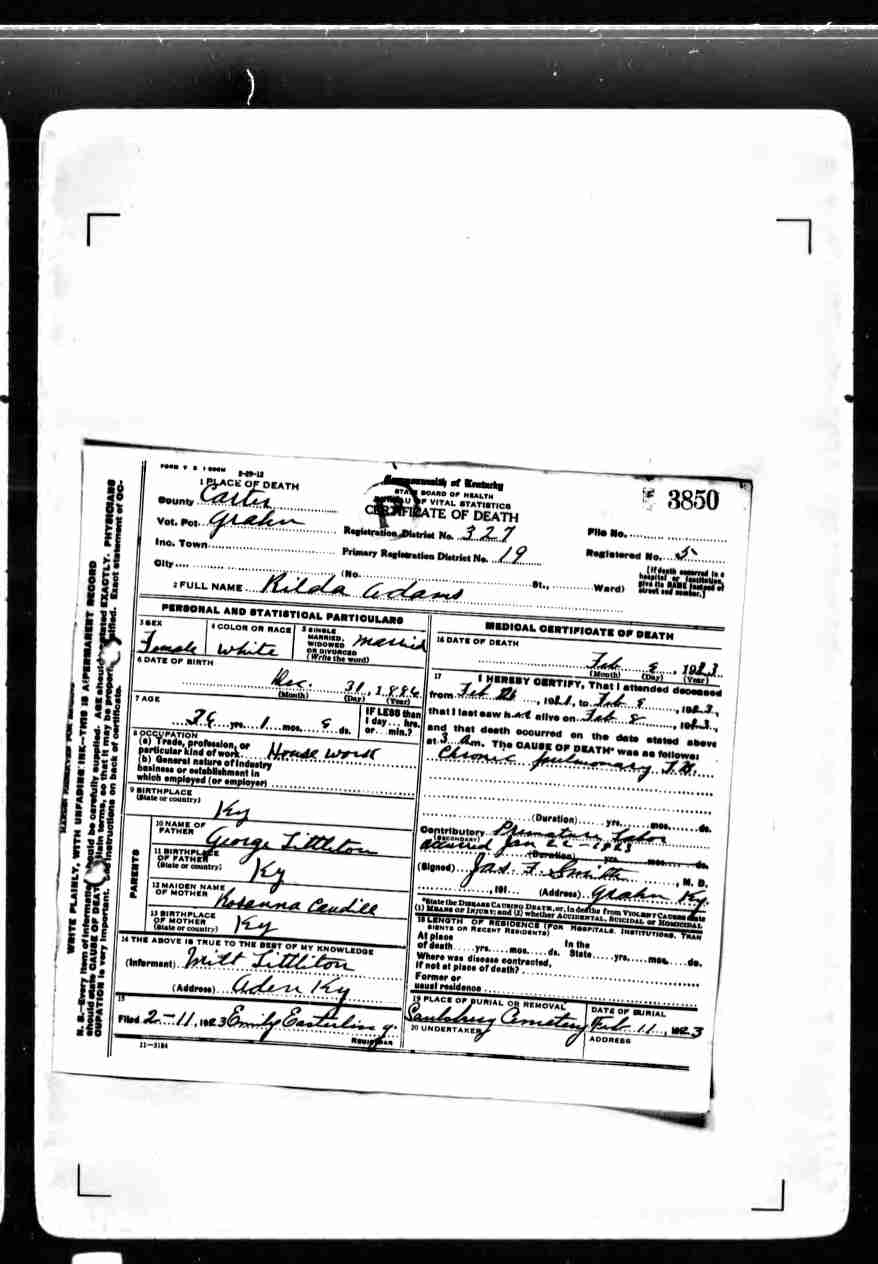 FORM V S 1 500M 2-29-12
1 PLACE OF DEATH
County Carter
Vot. Pct. Grahn
Inc. Town
City
Commonwealth of Kentucky
STATE BOARD OF HEALTH
BUREAU OF VITAL STATISTICS
CERTIFICATE OF DEATH
Registration District No. 327
Primary Registration District No. 19
(No. St., Ward)
3850
File No.
Registered No. 5
[If death occurred in a hospital or institution, give its NAME instead of street and number.]
2 FULL NAME Rilda Adams
PERSONAL AND STATISTICAL PARTICULARS
3 SEX
Female
4 COLOR OR RACE
White
5 SINGLE
MARRIED,
WIDOWED
OR DIVORCED
(Write the word)
Married
6 DATE OF BIRTH
Dec. 31, 1886
(Month) (Day) (Year)
7 AGE
36 yrs. 1 mos. 8 ds.
IF LESS than
1 day hrs.
or min.?
8 OCCUPATION
(a) Trade, profession, or
particular kind of work House work
(b) General nature of industry
business or establishment in
which employed (or employer)
9 BIRTHPLACE
(State or country)
Ky
PARENTS
10 NAME OF
FATHER
George Littleton
11 BIRTHPLACE
OF FATHER
(State or country)
Ky
12 MAIDEN NAME
OF MOTHER
Rosanna Caudill
13 BIRTHPLACE
OF MOTHER
(State or country)
Ky
14 THE ABOVE IS TRUE TO THE BEST OF MY KNOWLEDGE
(Informant) Mitt Littleton
(Address) Aden Ky
15
Filed 2-11, 1923 Emily Easterling
REGISTRAR
11-3184
MEDICAL CERTIFICATE OF DEATH
16 DATE OF DEATH
Feb 8, 1923
(Month) (Day) (Year)
17 I HEREBY CERTIFY, That I attended deceased
from Feb, to Feb 8, 1923,
that I last saw her alive on Feb 8, 1923,
and that death occurred on the date stated above
at 3 am. The CAUSE OF DEATH* was as follows:
Chronic pulmonary T.B.
(Duration) yrs. mos. ds.
Contributory Premature Labor
(SECONDARY)
occurred Jan 22-1923
(Duration) yrs. mos. ds.
(Signed) Jas. F. Smith, M. D.
, 191 (Address) Grahn Ky.
*State the DISEASE CAUSING DEATH, or, in deaths from VIOLENT CAUSES state
(1) MEANS OF INJURY; and (2) whether ACCIDENTAL, SUICIDAL or HOMICIDAL
18 LENGTH OF RESIDENCE (FOR HOSPITALS, INSTITUTIONS, TRANSIENTS OR RECENT RESIDENTS)
At place In the
of death yrs. mos. ds. State yrs. mos. ds.
Where was disease contracted,
if not at place of death?
Former or
usual residence
19 PLACE OF BURIAL OR REMOVAL
Saulsbury Cemetery
DATE OF BURIAL
Feb. 11, 1923
20 UNDERTAKER
ADDRESS
WRITE PLAINLY, WITH UNFADING INK—THIS IS A PERMANENT RECORD
N. B.—Every item of information should be carefully supplied. AGE should be stated EXACTLY. PHYSICIANS
should state CAUSE OF DEATH in plain terms, so that it may be properly classified. Exact statement of OC-
CUPATION is very important. See instructions on back of certificate.